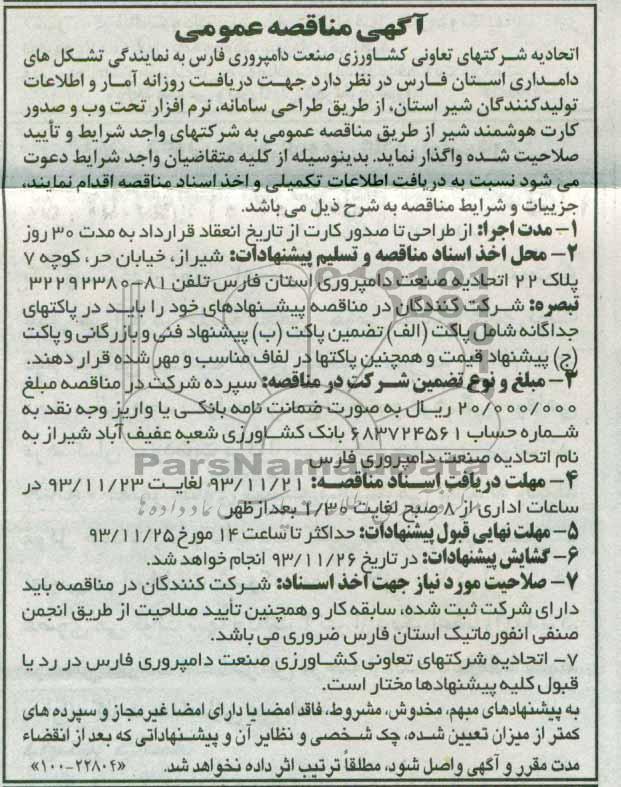 آگهی مناقصه عمومی
اتحادیه شرکتهای تعاونی کشاورزی صنعت دامپروری فارس به نمایندگی تشکل های
دامداری استان فارس در نظر دارد جهت دریافت روزانه آمار و اطلاعات
تولیدکنندگان شیر استان، از طریق طراحی سامانه، نرم افزار تحت وب و صدور
کارت هوشمند شیر از طریق مناقصه عمومی به شرکتهای واجد شرایط و تأیید
صلاحیت شده واگذار نماید. بدینوسیله از کلیه متقاضیان واجد شرایط دعوت
می شود نسبت به دریافت اطلاعات تکمیلی و اخذ اسناد مناقصه اقدام نمایند،
جزییات و شرایط مناقصه به شرح ذیل می باشد.
۱- مدت اجرا: از طراحی تا صدور کارت از تاریخ انعقاد قرارداد به مدت ۳۰ روز
۲- محل اخذ اسناد مناقصه و تسلیم پیشنهادات: شیراز، خیابان حر، کوچه ۷
پلاک ۲۲ اتحادیه صنعت دامپروری استان فارس تلفن ۸۱-۳۲۲۹۲۳۸۰
تبصره: شرکت کنندگان در مناقصه پیشنهادهای خود را باید در پاکتهای
جداگانه شامل پاکت (الف) تضمین پاکت (ب) پیشنهاد فنی و بازرگانی و پاکت
(ج) پیشنهاد قیمت و همچنین پاکتها در لفاف مناسب و مهر شده قرار دهند.
۳- مبلغ و نوع تضمین شرکت در مناقصه: سپرده شرکت در مناقصه مبلغ
۲۰/۰۰۰/۰۰۰ ریال به صورت ضمانت نامه بانکی یا واریز وجه نقد به
شماره حساب ۶۸۳۷۲۴۵۶۱ بانک کشاورزی شعبه عفیف آباد شیراز به
نام اتحادیه صنعت دامپروری فارس
ParsNamadData
۴- مهلت دریافت اسناد مناقصه: ۹۳/۱۱/۲۱ لغایت ۹۳/۱۱/۲۳ در
ساعات اداری از ۸ صبح لغایت ۱/۳۰ بعدازظهر
۵- مهلت نهایی قبول پیشنهادات: حداکثر تا ساعت ۱۴ مورخ ۹۳/۱۱/۲۵
۶- گشایش پیشنهادات: در تاریخ ۹۳/۱۱/۲۶ انجام خواهد شد.
۷- صلاحیت مورد نیاز جهت اخذ اسناد: شرکت کنندگان در مناقصه باید
دارای شرکت ثبت شده، سابقه کار و همچنین تأیید صلاحیت از طریق انجمن
صنفی انفورماتیک استان فارس ضروری می باشد.
۷- اتحادیه شرکتهای تعاونی کشاورزی صنعت دامپروری فارس در رد یا
قبول کلیه پیشنهادها مختار است.
به پیشنهادهای مبهم، مخدوش، مشروط، فاقد امضا یا دارای امضا غیرمجاز و سپرده های
کمتر از میزان تعیین شده، چک شخصی و نظایر آن و پیشنهاداتی که بعد از انقضاء
مدت مقرر و آگهی واصل شود، مطلقاً ترتیب اثر داده نخواهد شد. «۲۲۸۰۴-۱۰۰»